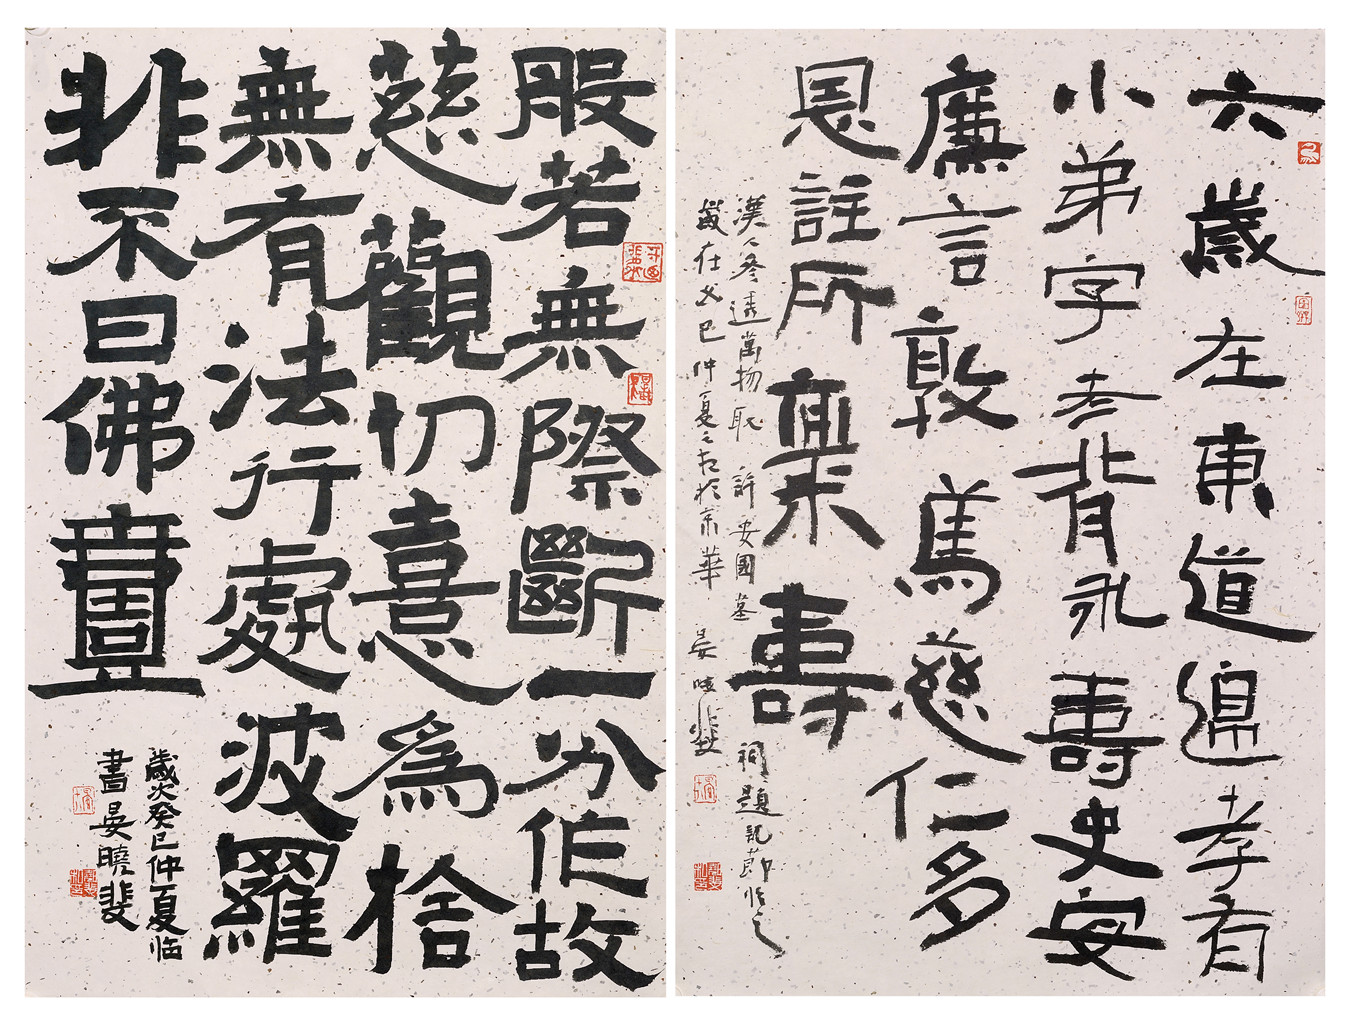 六歲在東道邊孝有
小弟字考背永壽史安
廉言敦篤慈仁多
恩註所稟壽
漢人 萬物 許安國墓祠題記節臨之
歲在癸巳仲夏 於京華 晏曉斐
般若無際斷一分作故
慈觀切憙為捨
無有法行處波羅
非不曰佛臺
歲次癸巳仲夏臨
書晏曉斐